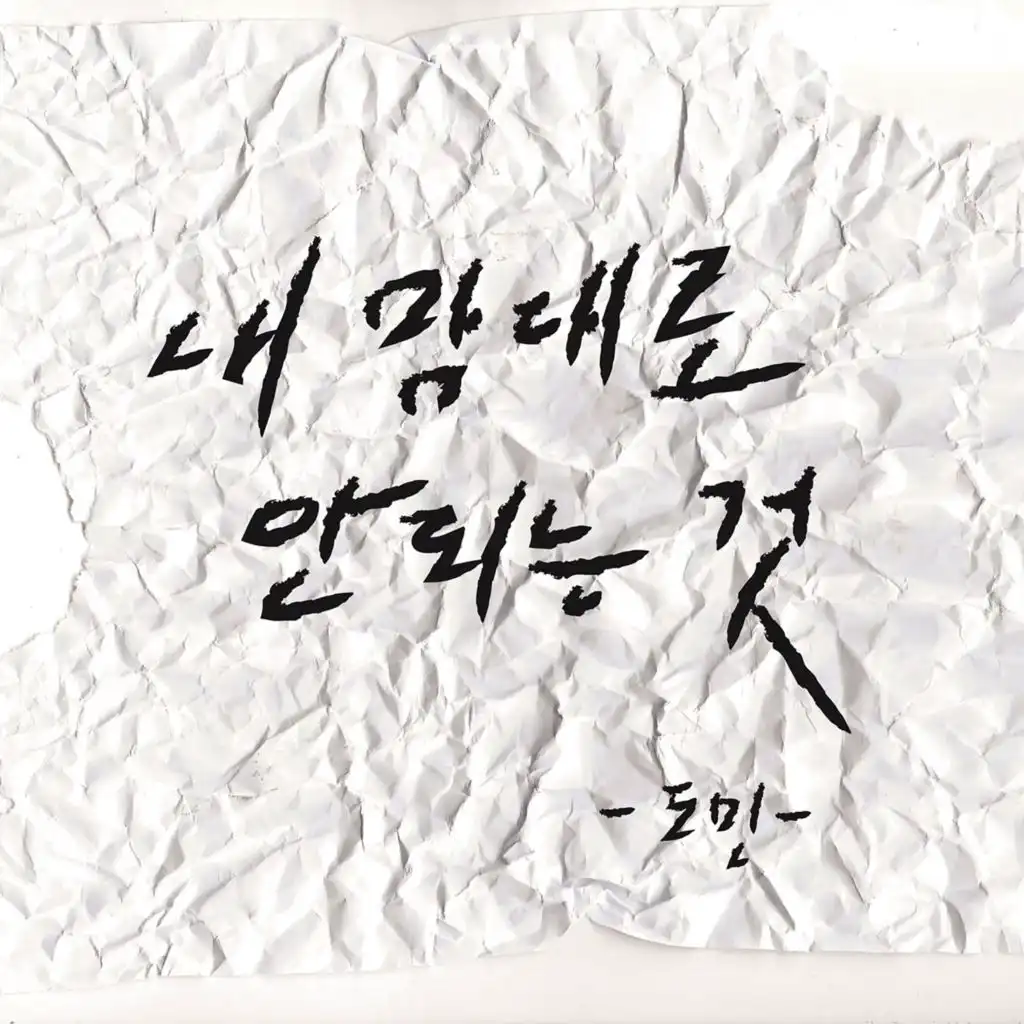 내 맘대로
안되는 것
- 도민 -